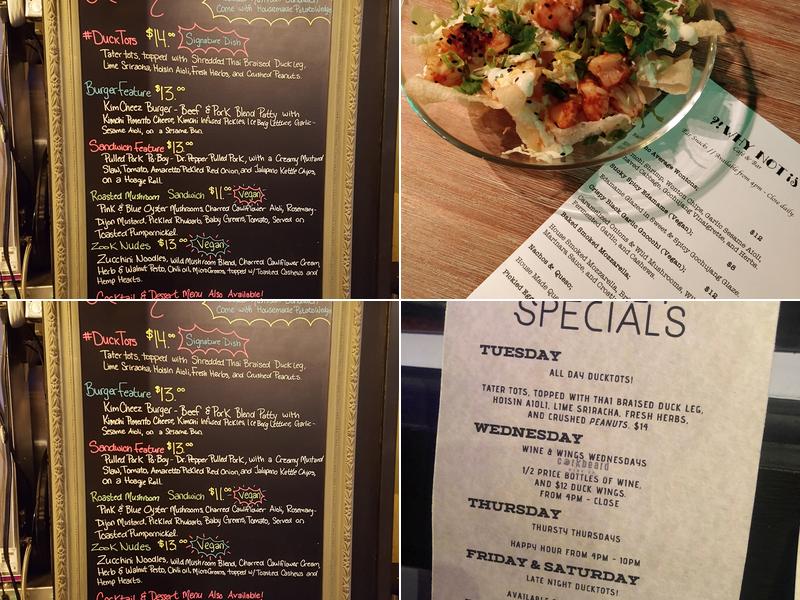 Come with Housemade Potato Wedges
#DuckTots $14.00 Signature Dish
Tater tots, topped with Shredded Thai Braised Duck Leg,
Lime Sriracha, Hoisin Aioli, Fresh Herbs, and Crushed Peanuts.
Burger Feature $13.00
Kim Cheez Burger - Beef & Pork Blend Patty with
Kimchi Pimento Cheese, Kimchi Infused Pickles, Ice Berg Lettuce, Garlic-
Sesame Aioli, on a Sesame Bun.
Sandwich Feature $13.00
Pulled Pork Po-Boy - Dr. Pepper Pulled Pork, with a Creamy Mustard
Slaw, Tomato, Amaretto Pickled Red Onion, and Jalapeno Kettle Chips,
on a Hoagie Roll.
Roasted Mushroom Sandwich $11.00 Vegan
Pink & Blue Oyster Mushrooms, Charred Cauliflower Aioli, Rosemary-
Dijon Mustard, Pickled Rhubarb, Baby Greens, Tomato, Served on
Toasted Pumpernickel.
Zook Nudes $13.00 Vegan
Zucchini Noodles, Wild Mushroom Blend, Charred Cauliflower Cream,
Herb & Walnut Pesto, Chili oil, MicroGreens, topped w/ Toasted Cashews and
Hemp Hearts.
Cocktail & Dessert Menu Also Available!
?!WHY NOT iS
Cafe & Bar
Snacks // Available from 4pm - Close daily
Average Wontons,
Shrimp, Wonton Chips, Garlic Sesame Aioli,
Shaved Cabbage, Gochujang Vinaigrette, and Herbs.
$12
Sticky Spicy Edamame (Vegan),
Edamame Glazed in Sweet & Spicy Goghujang Glaze.
$8
Crispy Black Garlic Gnocchi (Vegan),
Caramelized Onions & Wild Mushrooms,
Fermented Garlic, and Cashews.
$12
Baked Smoked Mozzarella,
House Smoked Mozzarella,
Marinara Sauce, and
Nachos & Queso,
House Made
Pickled
Come with Housemade Potato Wedges
#DuckTots $14.00 Signature Dish
Tater tots, topped with Shredded Thai Braised Duck Leg,
Lime Sriracha, Hoisin Aioli, Fresh Herbs, and Crushed Peanuts.
Burger Feature $13.00
Kim Cheez Burger - Beef & Pork Blend Patty with
Kimchi Pimento Cheese, Kimchi Infused Pickles, Ice Berg Lettuce, Garlic-
Sesame Aioli, on a Sesame Bun.
Sandwich Feature $13.00
Pulled Pork Po-Boy - Dr. Pepper Pulled Pork, with a Creamy Mustard
Slaw, Tomato, Amaretto Pickled Red Onion, and Jalapeno Kettle Chips,
on a Hoagie Roll.
Roasted Mushroom Sandwich $11.00 Vegan
Pink & Blue Oyster Mushrooms, Charred Cauliflower Aioli, Rosemary-
Dijon Mustard, Pickled Rhubarb, Baby Greens, Tomato, Served on
Toasted Pumpernickel.
Zook Nudes $13.00 Vegan
Zucchini Noodles, Wild Mushroom Blend, Charred Cauliflower Cream,
Herb & Walnut Pesto, Chili oil, MicroGreens, topped w/ Toasted Cashews and
Hemp Hearts.
Cocktail & Dessert Menu Also Available!
SPECIALS
TUESDAY
ALL DAY DUCKTOTS!
TATER TOTS, TOPPED WITH THAI BRAISED DUCK LEG,
HOISIN AIOLI, LIME SRIRACHA, FRESH HERBS,
AND CRUSHED PEANUTS. $14
WEDNESDAY
WINE & WINGS WEDNESDAYS
corkbeard
1/2 PRICE BOTTLES OF WINE,
AND $12 DUCK WINGS.
FROM 4PM - CLOSE
THURSDAY
THURSTY THURSDAYS
HAPPY HOUR FROM 4PM - 10PM
FRIDAY & SATURDAY
LATE NIGHT DUCKTOTS!